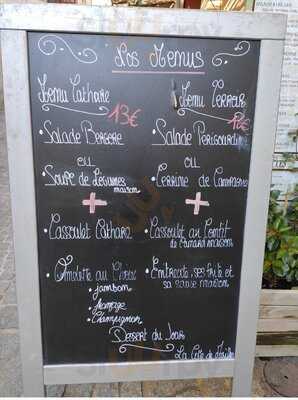 Nos Menus
Menu Cathare 13€
Menu Terroir
• Salade Bergere
• Salade Perigourdine
ou
ou
Soupe de Légumes maison
Terrine de Campagne
+
+
• Cassoulet Cathare
• Cassoulet au Confit
de Canard maison
• Omelette au Choix
• Entrecote, ses frite et
• jambon
sa sauce maison
• fromage
• Champignon
Dessert du Jour
La Cité de